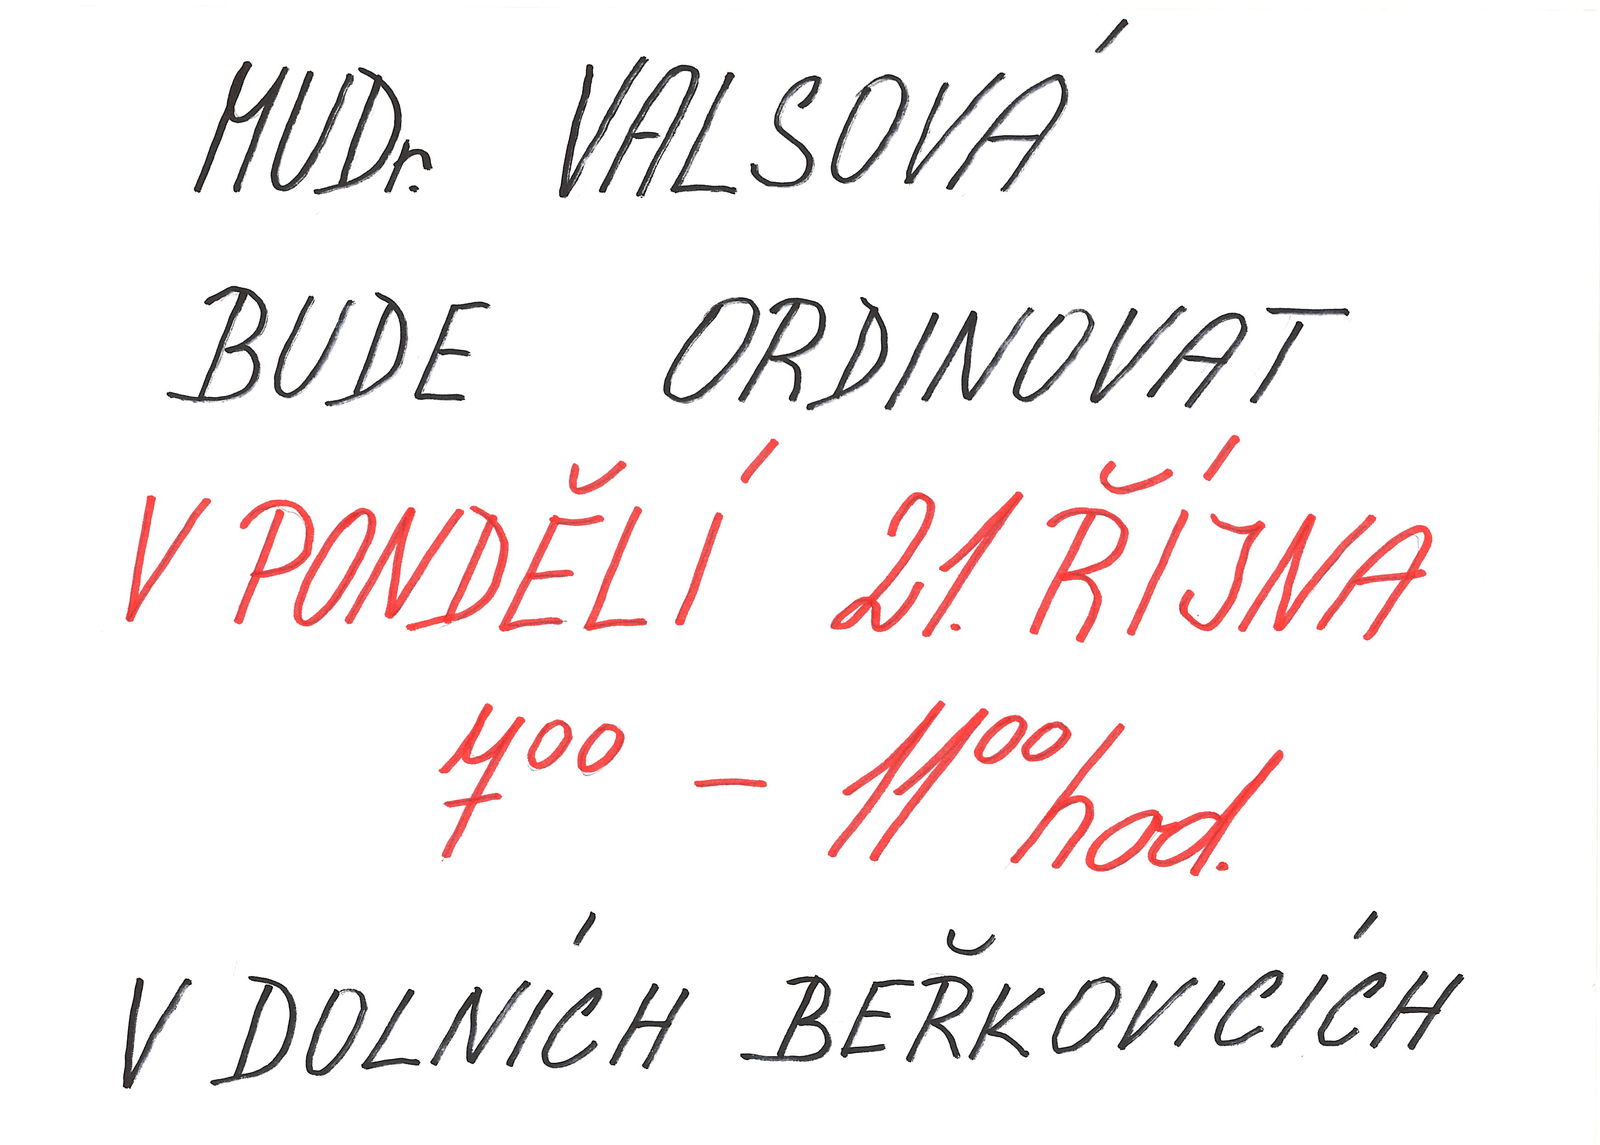 MUDr. VALSOVÁ
BUDE ORDINOVAT
V PONDĚLÍ 21. ŘÍJNA
7⁰⁰ – 11⁰⁰ hod.
V DOLNÍCH BEŘKOVICÍCH